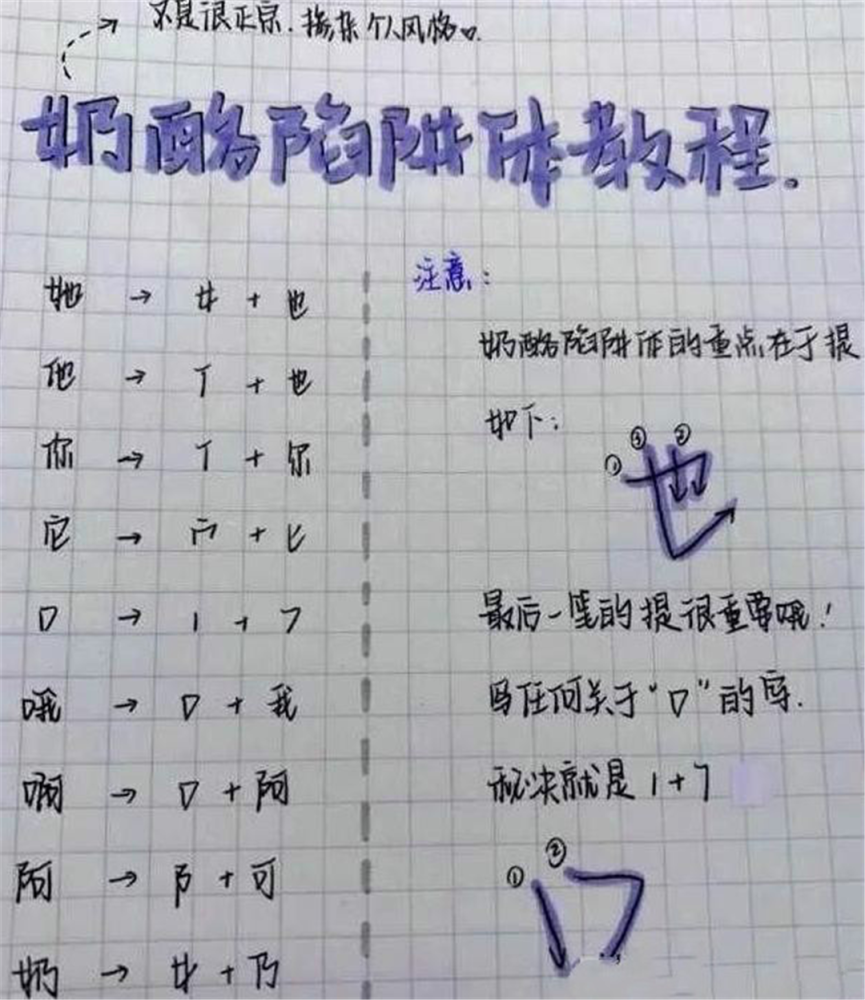 不是很正宗.掺杂个人风格
奶酪陷阱体教程.
她 → 女 + 也
他 → 亻 + 也
你 → 亻 + 尔
它 → 宀 + 匕
口 → 1 + 7
哦 → 口 + 我
啊 → 口 + 阿
阿 → 阝 + 可
奶 → 女 + 乃
注意：
奶酪陷阱体的重点在于提
如下：
① ③ ②
也
最后一笔的提很重要哦！
写任何关于“口”的字.
秘诀就是 1+7
① ②
口